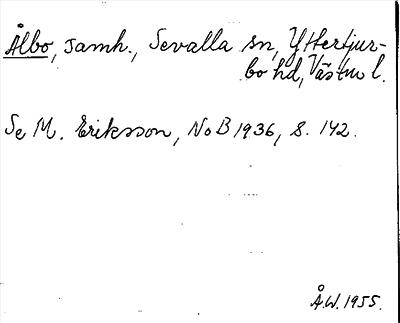 Ålbo, samh., Sevalla sn, Yttertjur-
bo hd, Västm l.
Se M. Eriksson, NoB 1936, s. 142.
Å.W. 1955.